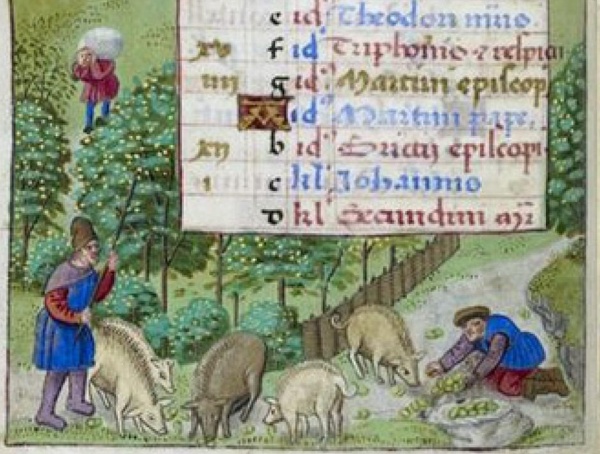 e id Theodori mris
xv f id Triphonis et respicii
iiij g id Martini episcop
A id Martini pape.
xij b id Bricij episcopi
i c kl Johannis
d kl Secundini mr̃